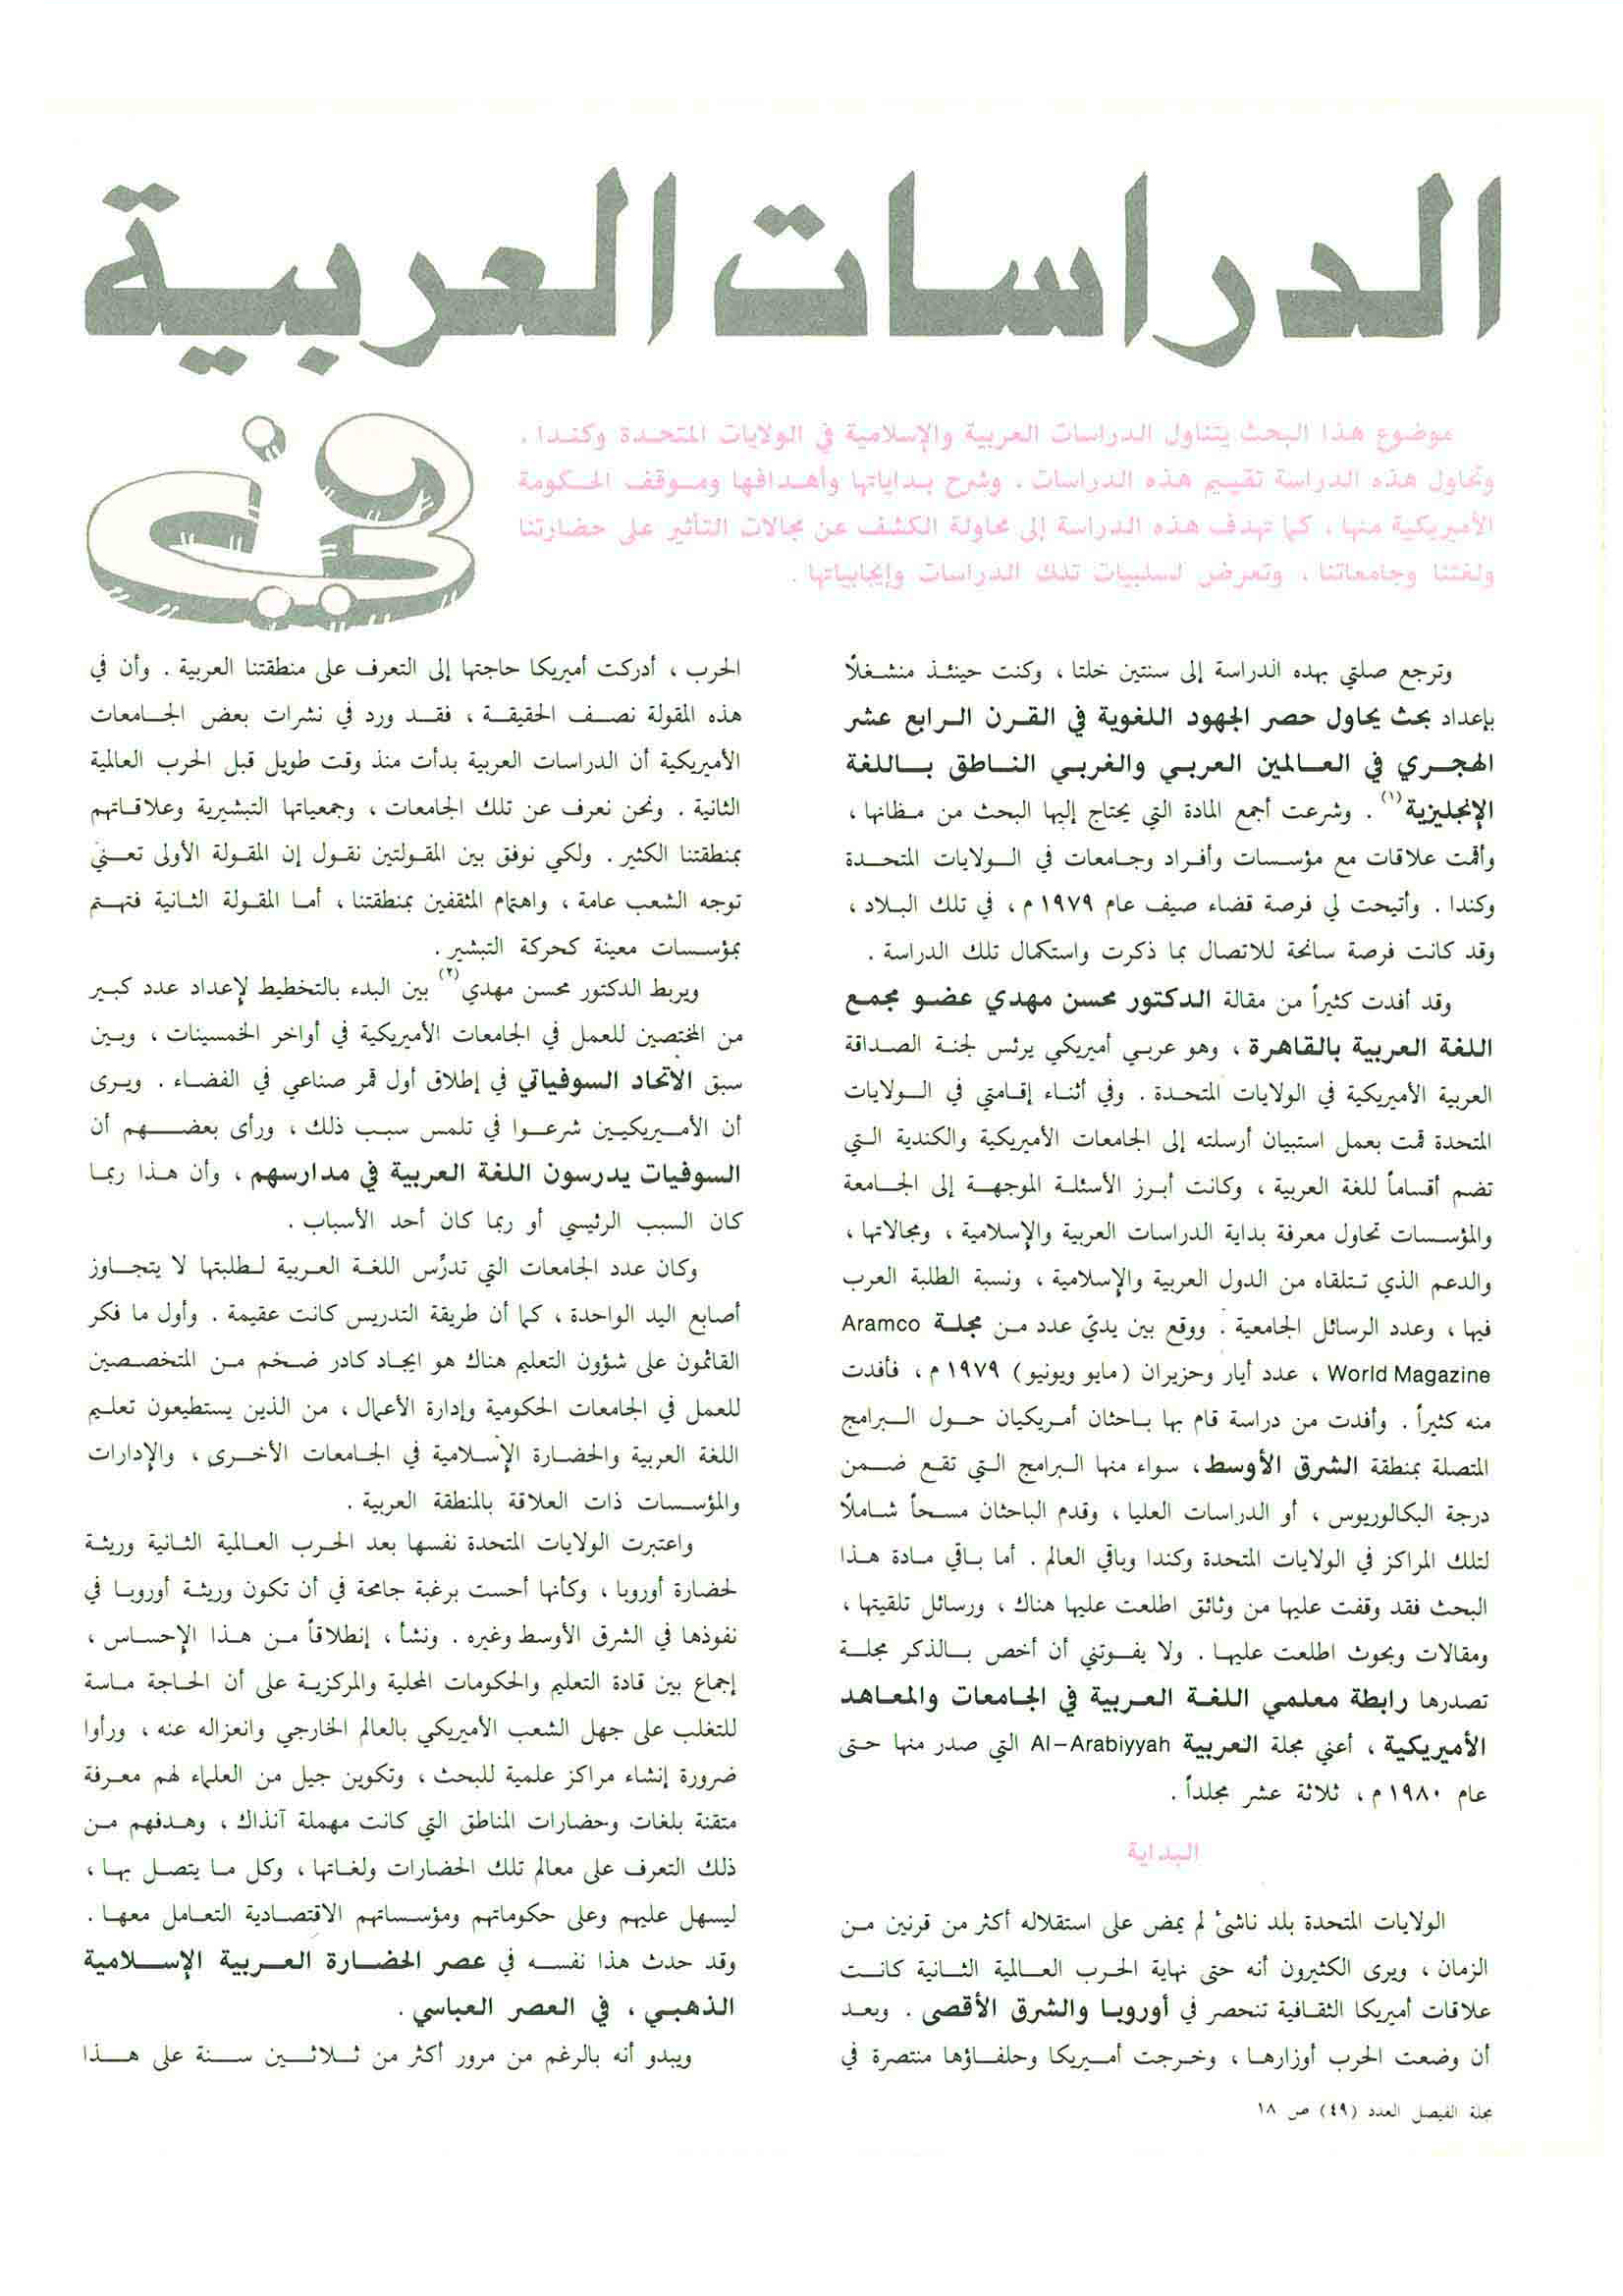 الدراسات العربية
في
موضوع هذا البحث يتناول الدراسات العربية والإسلامية في الولايات المتحدة وكندا .
وتحاول هذه الدراسة تقييم هذه الدراسات . وشرح بداياتها وأهدافها وموقف الحكومة
الأميريكية منها ، كما تهدف هذه الدراسة إلى محاولة الكشف عن مجالات التأثير على حضارتنا
ولغتنا وجامعاتنا ، وتعرض لسلبيات تلك الدراسات وإيجابياتها .
وترجع صلتي بهذه الدراسة إلى سنتين خلتا ، وكنت حينئذ منشغلاً
بإعداد بحث يحاول حصر الجهود اللغوية في القرن الرابع عشر
الهجري في العالمين العربي والغربي الناطق باللغة
الإنجليزية(١) . وشرعت أجمع المادة التي يحتاج إليها البحث من مظانها ،
وأقمت علاقات مع مؤسسات وأفراد وجامعات في الولايات المتحدة
وكندا . وأتيحت لي فرصة قضاء صيف عام ١٩٧٩ م ، في تلك البلاد ،
وقد كانت فرصة سانحة للاتصال بما ذكرت واستكمال تلك الدراسة .
وقد أفدت كثيراً من مقالة الدكتور محسن مهدي عضو مجمع
اللغة العربية بالقاهرة ، وهو عربي أميريكي يرئس لجنة الصداقة
العربية الأميريكية في الولايات المتحدة . وفي أثناء إقامتي في الولايات
المتحدة قمت بعمل استبيان أرسلته إلى الجامعات الأميريكية والكندية التي
تضم أقساماً للغة العربية ، وكانت أبرز الأسئلة الموجهة إلى الجامعة
والمؤسسات تحاول معرفة بداية الدراسات العربية والإسلامية ، ومجالاتها ،
والدعم الذي تتلقاه من الدول العربية والإسلامية ، ونسبة الطلبة العرب
فيها ، وعدد الرسائل الجامعية . ووقع بين يديّ عدد من مجلة Aramco
World Magazine ، عدد أيار وحزيران (مايو ويونيو) ١٩٧٩ م ، فأفدت
منه كثيراً . وأفدت من دراسة قام بها باحثان أمريكيان حول البرامج
المتصلة بمنطقة الشرق الأوسط، سواء منها البرامج التي تقع ضمن
درجة البكالوريوس ، أو الدراسات العليا ، وقدم الباحثان مسحاً شاملاً
لتلك المراكز في الولايات المتحدة وكندا وباقي العالم . أما باقي مادة هذا
البحث فقد وقفت عليها من وثائق اطلعت عليها هناك ، ورسائل تلقيتها ،
ومقالات وبحوث اطلعت عليها . ولا يفوتني أن أخص بالذكر مجلة
تصدرها رابطة معلمي اللغة العربية في الجامعات والمعاهد
الأميريكية ، أعني مجلة العربية Al-Arabiyyah التي صدر منها حتى
عام ١٩٨٠ م ، ثلاثة عشر مجلداً .
البداية
الولايات المتحدة بلد ناشئ لم يمض على استقلاله أكثر من قرنين من
الزمان ، ويرى الكثيرون أنه حتى نهاية الحرب العالمية الثانية كانت
علاقات أميريكا الثقافية تنحصر في أوروبا والشرق الأقصى . وبعد
أن وضعت الحرب أوزارها ، وخرجت أميريكا وحلفاؤها منتصرة في
الحرب ، أدركت أميريكا حاجتها إلى التعرف على منطقتنا العربية . وأن في
هذه المقولة نصف الحقيقة ، فقد ورد في نشرات بعض الجامعات
الأميريكية أن الدراسات العربية بدأت منذ وقت طويل قبل الحرب العالمية
الثانية . ونحن نعرف عن تلك الجامعات ، وجمعياتها التبشيرية وعلاقاتهم
بمنطقتنا الكثير . ولكي نوفق بين المقولتين نقول إن المقولة الأولى تعني
توجه الشعب عامة ، واهتمام المثقفين بمنطقتنا ، أما المقولة الثانية فتهتم
بمؤسسات معينة كحركة التبشير .
ويربط الدكتور محسن مهدي(٢) بين البدء بالتخطيط لإعداد عدد كبير
من المختصين للعمل في الجامعات الأميريكية في أواخر الخمسينات ، وبين
سبق الاتحاد السوفياتي في إطلاق أول قمر صناعي في الفضاء . ويرى
أن الأميريكيين شرعوا في تلمس سبب ذلك ، ورأى بعضهم أن
السوفيات يدرسون اللغة العربية في مدارسهم ، وأن هذا ربما
كان السبب الرئيسي أو ربما كان أحد الأسباب .
وكان عدد الجامعات التي تدرِّس اللغة العربية لطلبتها لا يتجاوز
أصابع اليد الواحدة ، كما أن طريقة التدريس كانت عقيمة . وأول ما فكر
القائمون على شؤون التعليم هناك هو ايجاد كادر ضخم من المتخصصين
للعمل في الجامعات الحكومية وإدارة الأعمال ، من الذين يستطيعون تعليم
اللغة العربية والحضارة الإسلامية في الجامعات الأخرى ، والإدارات
والمؤسسات ذات العلاقة بالمنطقة العربية .
واعتبرت الولايات المتحدة نفسها بعد الحرب العالمية الثانية وريثة
لحضارة أوروبا ، وكأنها أحست برغبة جامحة في أن تكون وريثة أوروبا في
نفوذها في الشرق الأوسط وغيره . ونشأ ، إنطلاقاً من هذا الإحساس ،
إجماع بين قادة التعليم والحكومات المحلية والمركزية على أن الحاجة ماسة
للتغلب على جهل الشعب الأميريكي بالعالم الخارجي وانعزاله عنه ، ورأوا
ضرورة إنشاء مراكز علمية للبحث ، وتكوين جيل من العلماء لهم معرفة
متقنة بلغات وحضارات المناطق التي كانت مهملة آنذاك ، وهدفهم من
ذلك التعرف على معالم تلك الحضارات ولغاتها ، وكل ما يتصل بها ،
ليسهل عليهم وعلى حكوماتهم ومؤسساتهم الاقتصادية التعامل معها .
وقد حدث هذا نفسه في عصر الحضارة العربية الإسلامية
الذهبي ، في العصر العباسي .
ويبدو أنه بالرغم من مرور أكثر من ثلاثين سنة على هذا
مجلة الفيصل العدد (٤٩) ص ١٨